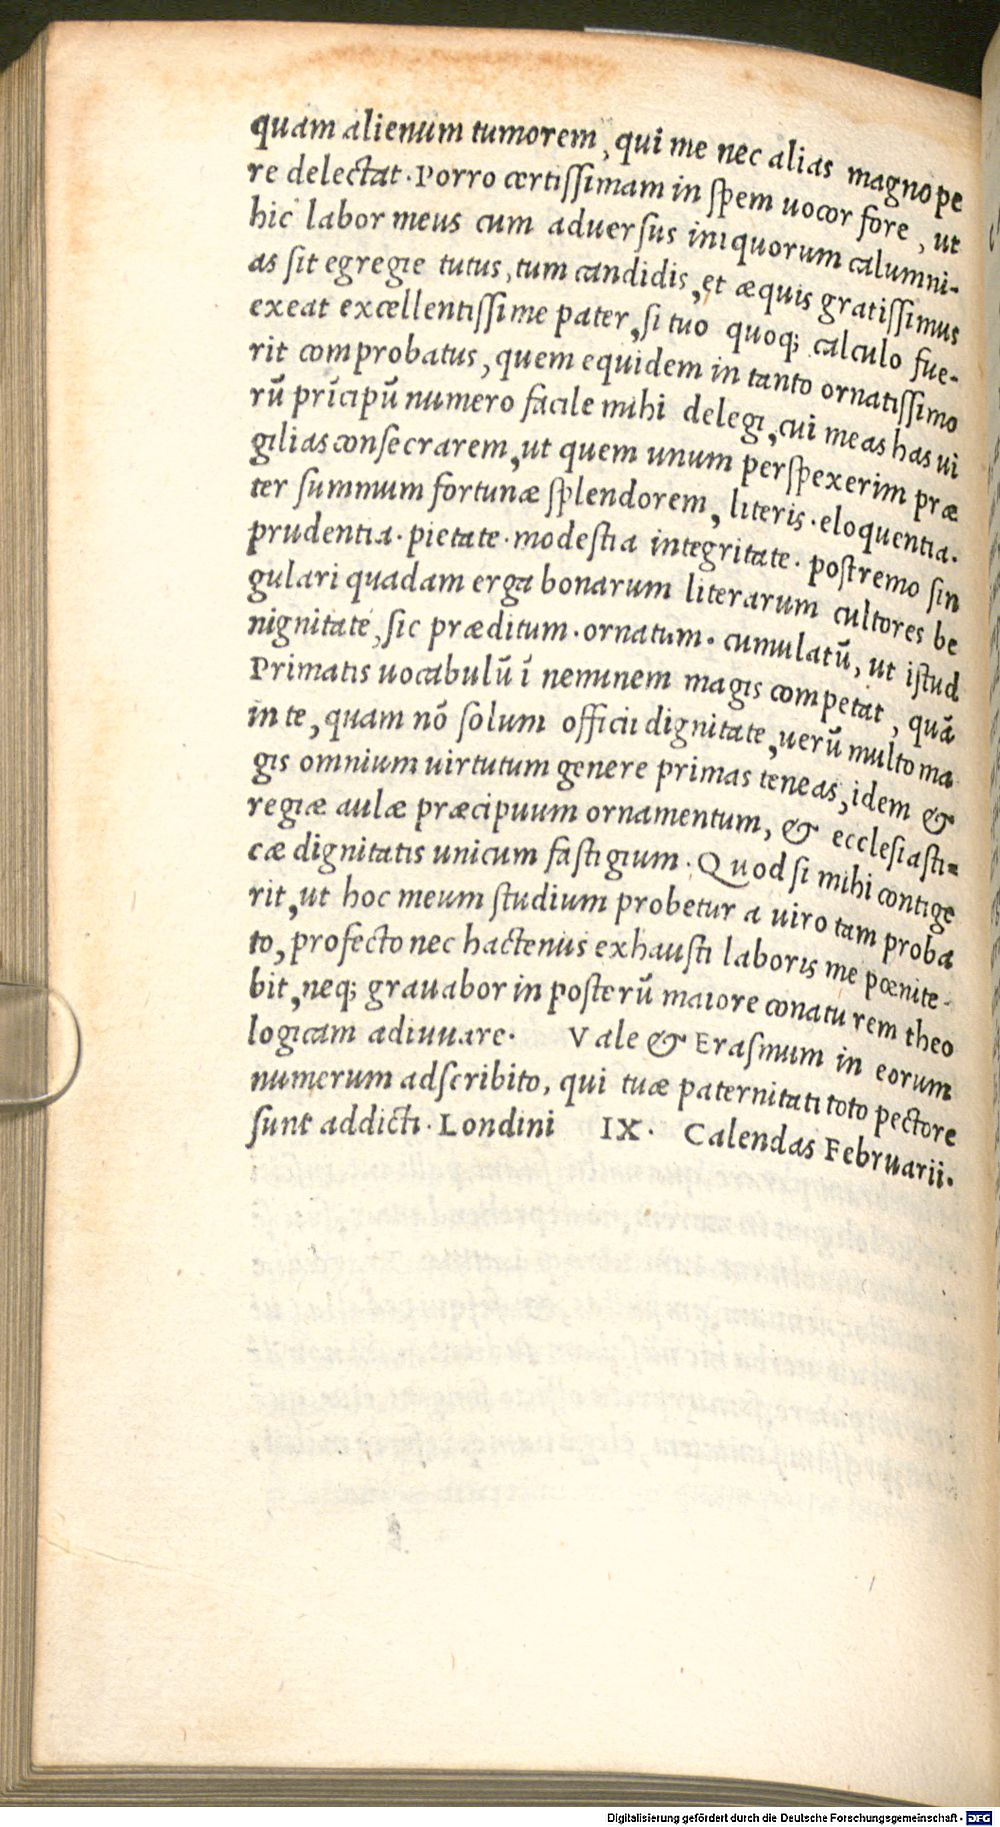 quam alienum tumorem, qui me nec alias magnope
re delectat. Porro certissimam in spem uocor fore, ut
hic labor meus cum aduersus iniquorum calumni-
as sit egregie tutus, tum candidis, et æquis gratissimus
exeat excellentissime pater, si tuo quoq; calculo fue-
rit comprobatus, quem equidem in tanto ornatissimo
rũ prĩcipũ numero facile mihi delegi, cui meas has ui
gilias consecrarem, ut quem unum perspexerim præ
ter summum fortunæ splendorem, literis. eloquentia.
prudentia. pietate. modestia integritate. postremo sin
gulari quadam erga bonarum literarum cultores be
nignitate, sic præditum. ornatum. cumulatũ, ut istud
Primatis uocabulũ ĩ neminem magis competat, quã
in te, quam nõ solum officii dignitate, uerũ multo ma
gis omnium uirtutum genere primas teneas, idem &
regiæ aulæ præcipuum ornamentum, & ecclesiasti=
cæ dignitatis unicum fastigium. Quod si mihi contige
rit, ut hoc meum studium probetur a uiro tam proba
to, profecto nec hactenus exhausti laboris me pœnite-
bit, neq; grauabor in posterũ maiore conatu rem theo
logicam adiuuare. Vale & Erasmum in eorum
numerum adscribito, qui tuæ paternitati toto pectore
sunt addicti. Londini IX. Calendas Februarii.
Digitalisierung gefördert durch die Deutsche Forschungsgemeinschaft - DFG